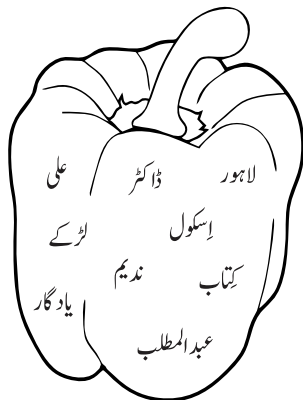 لاہور
ڈاکٹر
علی
اِسکول
لڑکے
کِتاب
ندیم
یادگار
عبدالمطلب